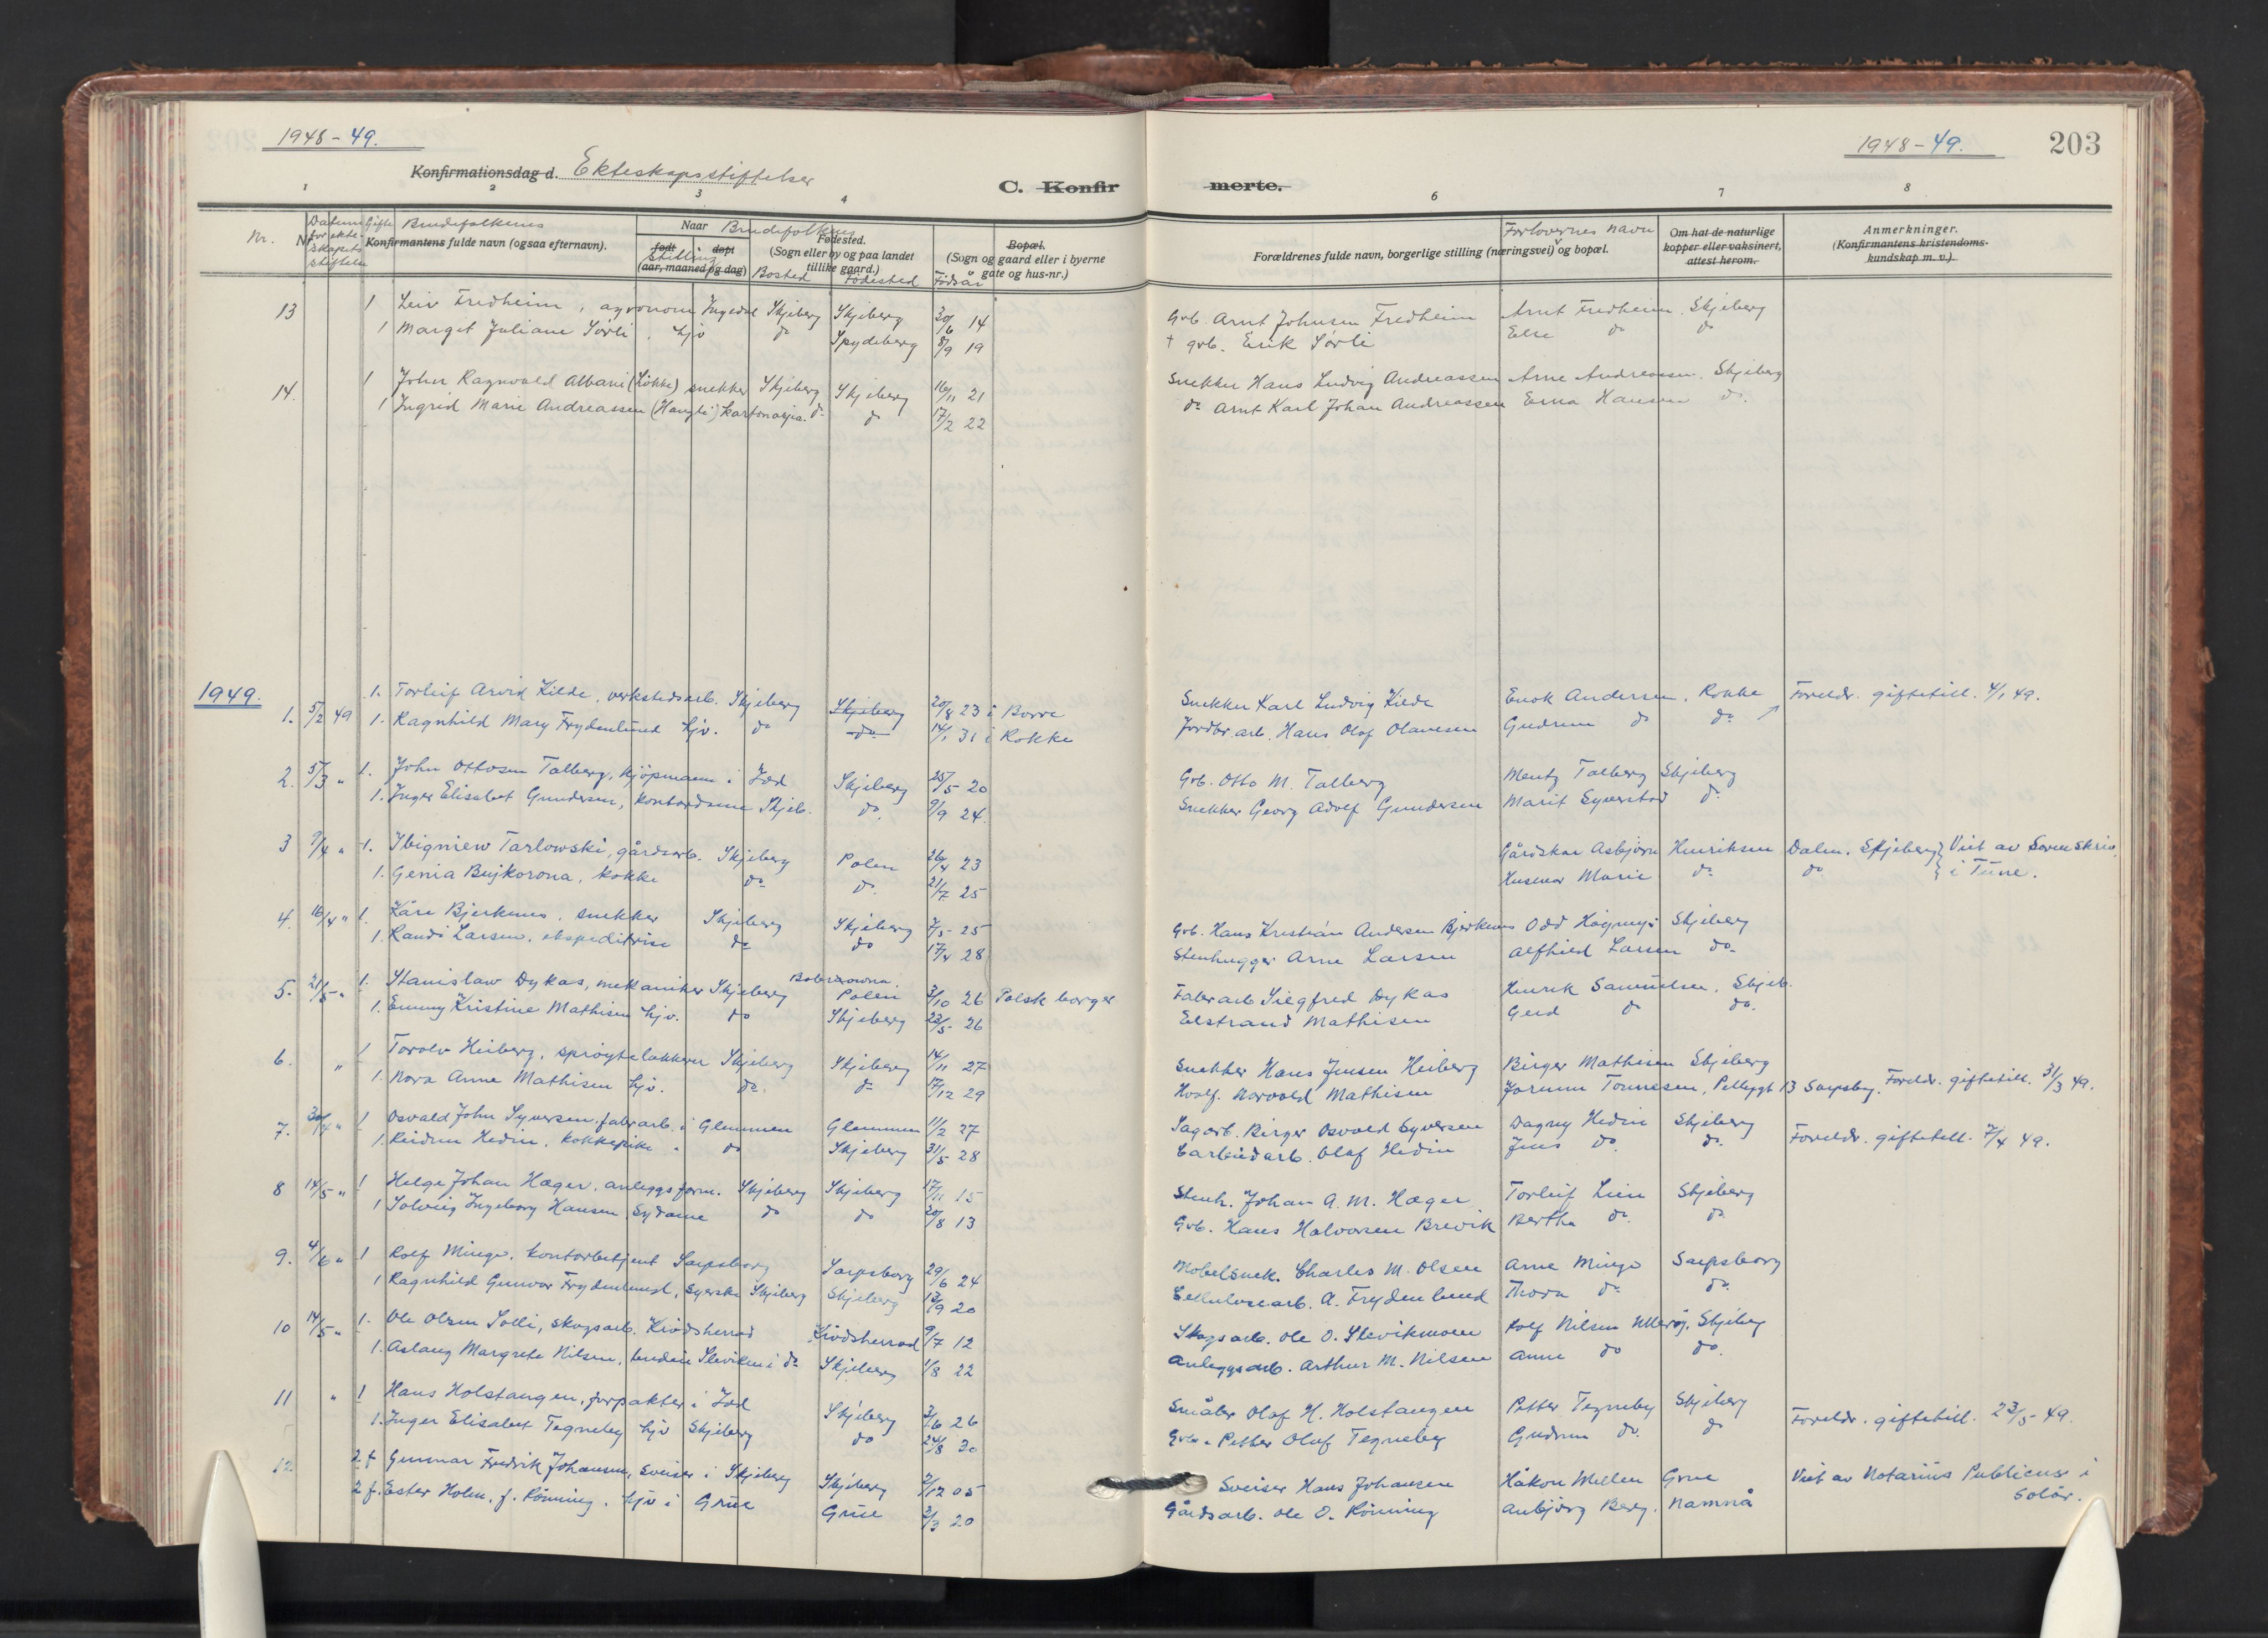 1948-49.
1948-49.
203
Konfirmationsdag d. Ekteskapsstiftelser
C. Konfir
merte.
1 2 3 4 6 7 8
Nr. Nr. Datum for ekteskapets stiftelse Gifte Brudefolkenes
Konfirmantens fulde navn (ogsaa efternavn).
Naar født døpt (aar, maaned og dag) Stilling
Brudefolkenes Fødested. (Sogn eller by og paa landet tillike gaard.) Bosted Fødested
Bopæl. (Sogn og gaard eller i byerne gate og hus-nr.) Fødsår
Forældrenes fulde navn, borgerlige stilling (næringsvei) og bopæl.
Forlovernes navn
Om hat de naturlige kopper eller vaksinert, attest herom.
Anmerkninger. (Konfirmantens kristendomskundskap m. v.).
13 1 Leiv Fredheim, agronom Ingedal Skjeberg Skjeberg 30/6 14 Grb. Arnt Johnsen Fredheim Arnt Fredheim Skjeberg
1 Margit Juliane Sørli, hjv do Spydeberg 8/9 19 † grb. Erik Sørli Else do do
14. 1 John Ragnvald Albani (Løkke) snekker Skjeberg Skjeberg 16/11 21 Snekker Hans Ludvig Andreassen Arne Andreassen. Skjeberg
1 Ingrid Marie Andreassen kartonasjea. do do 17/2 22 do Arnt Karl Johan Andreassen Erna Hansen do.
1949.
1. 5/2 49 1. Torleif Arvid Kilde, verkstedsarb. Skjeberg Skjeberg 20/8 23 i Borre Snekker Karl Ludvig Kilde Enok Andersen, Rokke Foreldr. giftetill. 4/1 49.
1. Ragnhild Mary Frydenlund hjv. do do 14/1 31 i Rokke Jordbr. arb. Hans Olaf Olavesen Gudrun do do
2. 5/3 " 1. John Ottosen Talberg, kjøpmann i Skjeberg 25/5 20 Grb. Otto M. Talberg Mentz Talberg Skjeberg
1. Inger Elisabet Gundersen, kontordame Skjeb. do. 9/9 24. Snekker Georg Adolf Gundersen Marit Syverstad do
3 9/4 " 1. Zbigniew Tarlowski, gårdsarb. Skjeberg Polen 26/4 23 Gårdskar Asbjørn Henriksen Dalen. Skjeberg } Viet av Sorenskriv.
1. Genia Bujkorona, kokke do do. 21/7 25 Husmor Marie do do } i Tune.
4. 16/4 " 1. Kåre Bjerknes, snekker Skjeberg Skjeberg 7/5 25 Grb. Hans Kristian Andersen Bjerknes Odd Skjeberg
1. Randi Larsen, ekspeditrise do do 17/4 28 Stenhugger Arne Larsen Alfhild Larsen do
5. 21/5 " 1. Stanislaw Dykas, mekaniker Skjeberg Polen 3/10 26 Polsk borger Fabr.arb Siegfred Dykas Henrik Samuelsen, Skjeb.
1. Emmy Kristine Mathisen hjv. do Skjeberg 23/5 26 Elstrand Mathisen Gerd do do.
6. " 1 Torolv Heiberg, sprøytelakkerer Skjeberg Skjeberg 14/11 27 Snekker Hans Jensen Heiberg Birger Mathisen Skjeberg
1. Nora Anne Mathisen hjv. do. do 17/12 29 Hvalf. Norvald Mathisen Jorunn Tønnesen, Pellygt 13 Sarpsbg. Foreldr. giftetill. 31/3 49.
7. 30/4 " 1 Osvald John Syversen, fabr.arb. i Glemmen Glemmen 11/2 27 Sagarb. Birger Osvald Syversen Dagny Hedin Skjeberg
1. Reidun Hedin, kokkepike do Skjeberg 31/5 28 Carbidarb. Olaf Hedin Jens do. do. Foreldr. giftetill. 7/4 49.
8 14/5 " 1 Helge Johan Hæger, anleggsform. Skjeberg Skjeberg 17/11 15 Stenh. Johan A. M. Hæger Torleif Lien Skjeberg
1 Solveig Ingeborg Hansen, Sydame do do 20/8 13 Grb. Hans Halvorsen Brevik Bertha do. do
9. 4/6 " 1 Rolf Minge, kontorbetjent Sarpsborg Sarpsborg 29/6 24 Møbelsnek. Charles M. Olsen Arne Minge Sarpsborg
1 Ragnhild Gunvor Frydenlund, syerske Skjeberg Skjeberg 13/9 20 Cellulosearb. A. Frydenlund Thora do. do.
10 14/5 " 1. Ole Olsen Solli, skogsarb. Krødsherrad Krødsherrad 9/7 12 Skogsarb. Ole O. Slevikmoen Rolf Nilsen Ullerøy, Skjeberg
1. Aslaug Margrete Nilsen, i do Skjeberg 1/8 22 Anleggsarb. Arthur M. Nilsen Anne do do.
11 " 1 Hans Holstangen, forpakter i Skjeberg 3/6 26 Småbr Olaf H. Holstangen Petter Tegneby Skjeberg
1. Inger Elisabet Tegneby hjv Skjeberg do 24/8 30 Grb. Petter Olaf Tegneby Gudrun do. do Foreldr. giftetill. 23/5 49.
12 2 f Gunnar Fredrik Johansen, sveiser i Skjeberg Skjeberg 2/12 05 Sveiser Hans Johansen Håkon Mellem Grue Viet av Notarius Publicus i
2 f. Ester Holm, f. Rønning, hjv i Grue Grue 2/3 20 Gårdsarb. Ole O. Rønning Anbjørg Berg, Namnå Solør.